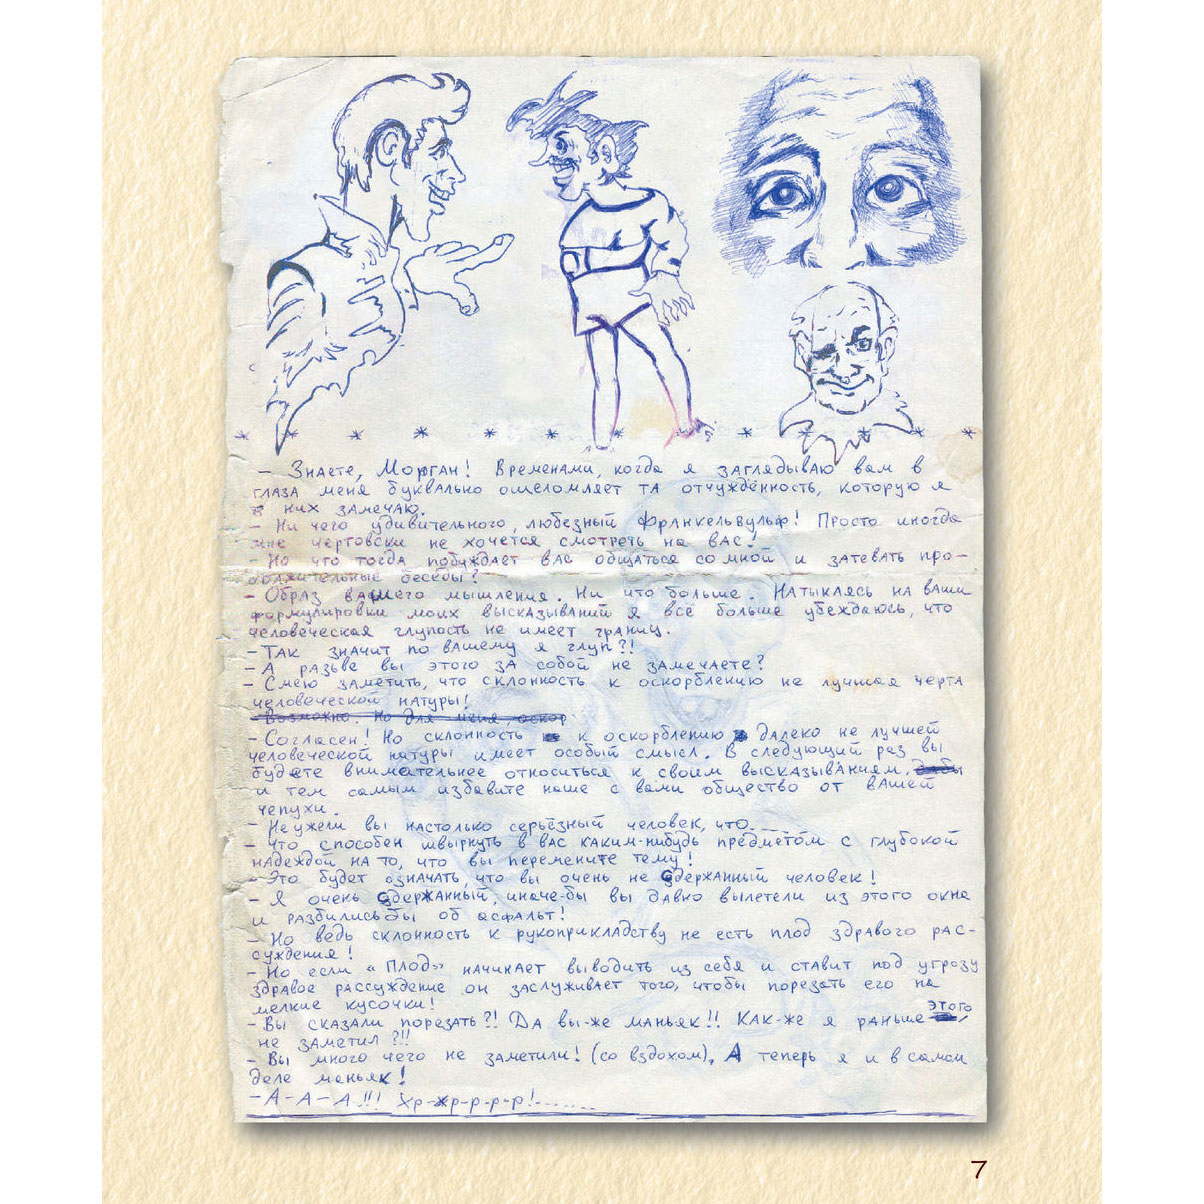 * * * * * * * * * * * *
– Знаете, Морган! Временами, когда я заглядываю вам в
глаза меня буквально ошеломляет та отчуждённость, которую я
в них замечаю.
– Ни чего удивительного, любезный Франкельвульф! Просто иногда
мне чертовски не хочется смотреть на вас!
– Но что тогда побуждает вас общаться со мной и затевать про-
должительные беседы?
– Образ вашего мышления. Ни что больше. Натыкаясь на ваши
формулировки моих высказываний я всё больше убеждаюсь, что
человеческая глупость не имеет границ.
– Так значит по вашему я глуп?!
– А разьве вы этого за собой не замечаете?
– Смею заметить, что склонность к оскорблению не лучшая черта
человеческой натуры!
– Возможно. Но для меня, оскор
– Согласен! Но склонность к оскорблению далеко не лучшей
человеческой натуры имеет особый смысл. В следующий раз вы
будете внимательнее относиться к своим высказываниям, дабы
и тем самым избавите наше с вами общество от вашей
чепухи.
– Неужели вы настолько серьёзный человек, что...
– Что способен швырнуть в вас каким-нибудь предметом с глубокой
надеждой на то, что вы перемените тему!
– Это будет означать, что вы очень не сдержанный человек!
– Я очень сдержанный, иначе-бы вы давно вылетели из этого окна
и разбились бы об асфальт!
– Но ведь склонность к рукоприкладству не есть плод здравого рас-
суждения!
– Но если «Плод» начинает выводить из себя и ставит под угрозу
здравое рассуждение он заслуживает того, чтобы порезать его на
мелкие кусочки!
– Вы сказали порезать?! Да вы-же маньяк!! Как-же я раньше этого
не заметил?!!
– Вы много чего не заметили! (со вздохом), А теперь я и в самом
деле маньяк!
– А – А – А!!! Хр-хр-р-р-р!.......
7